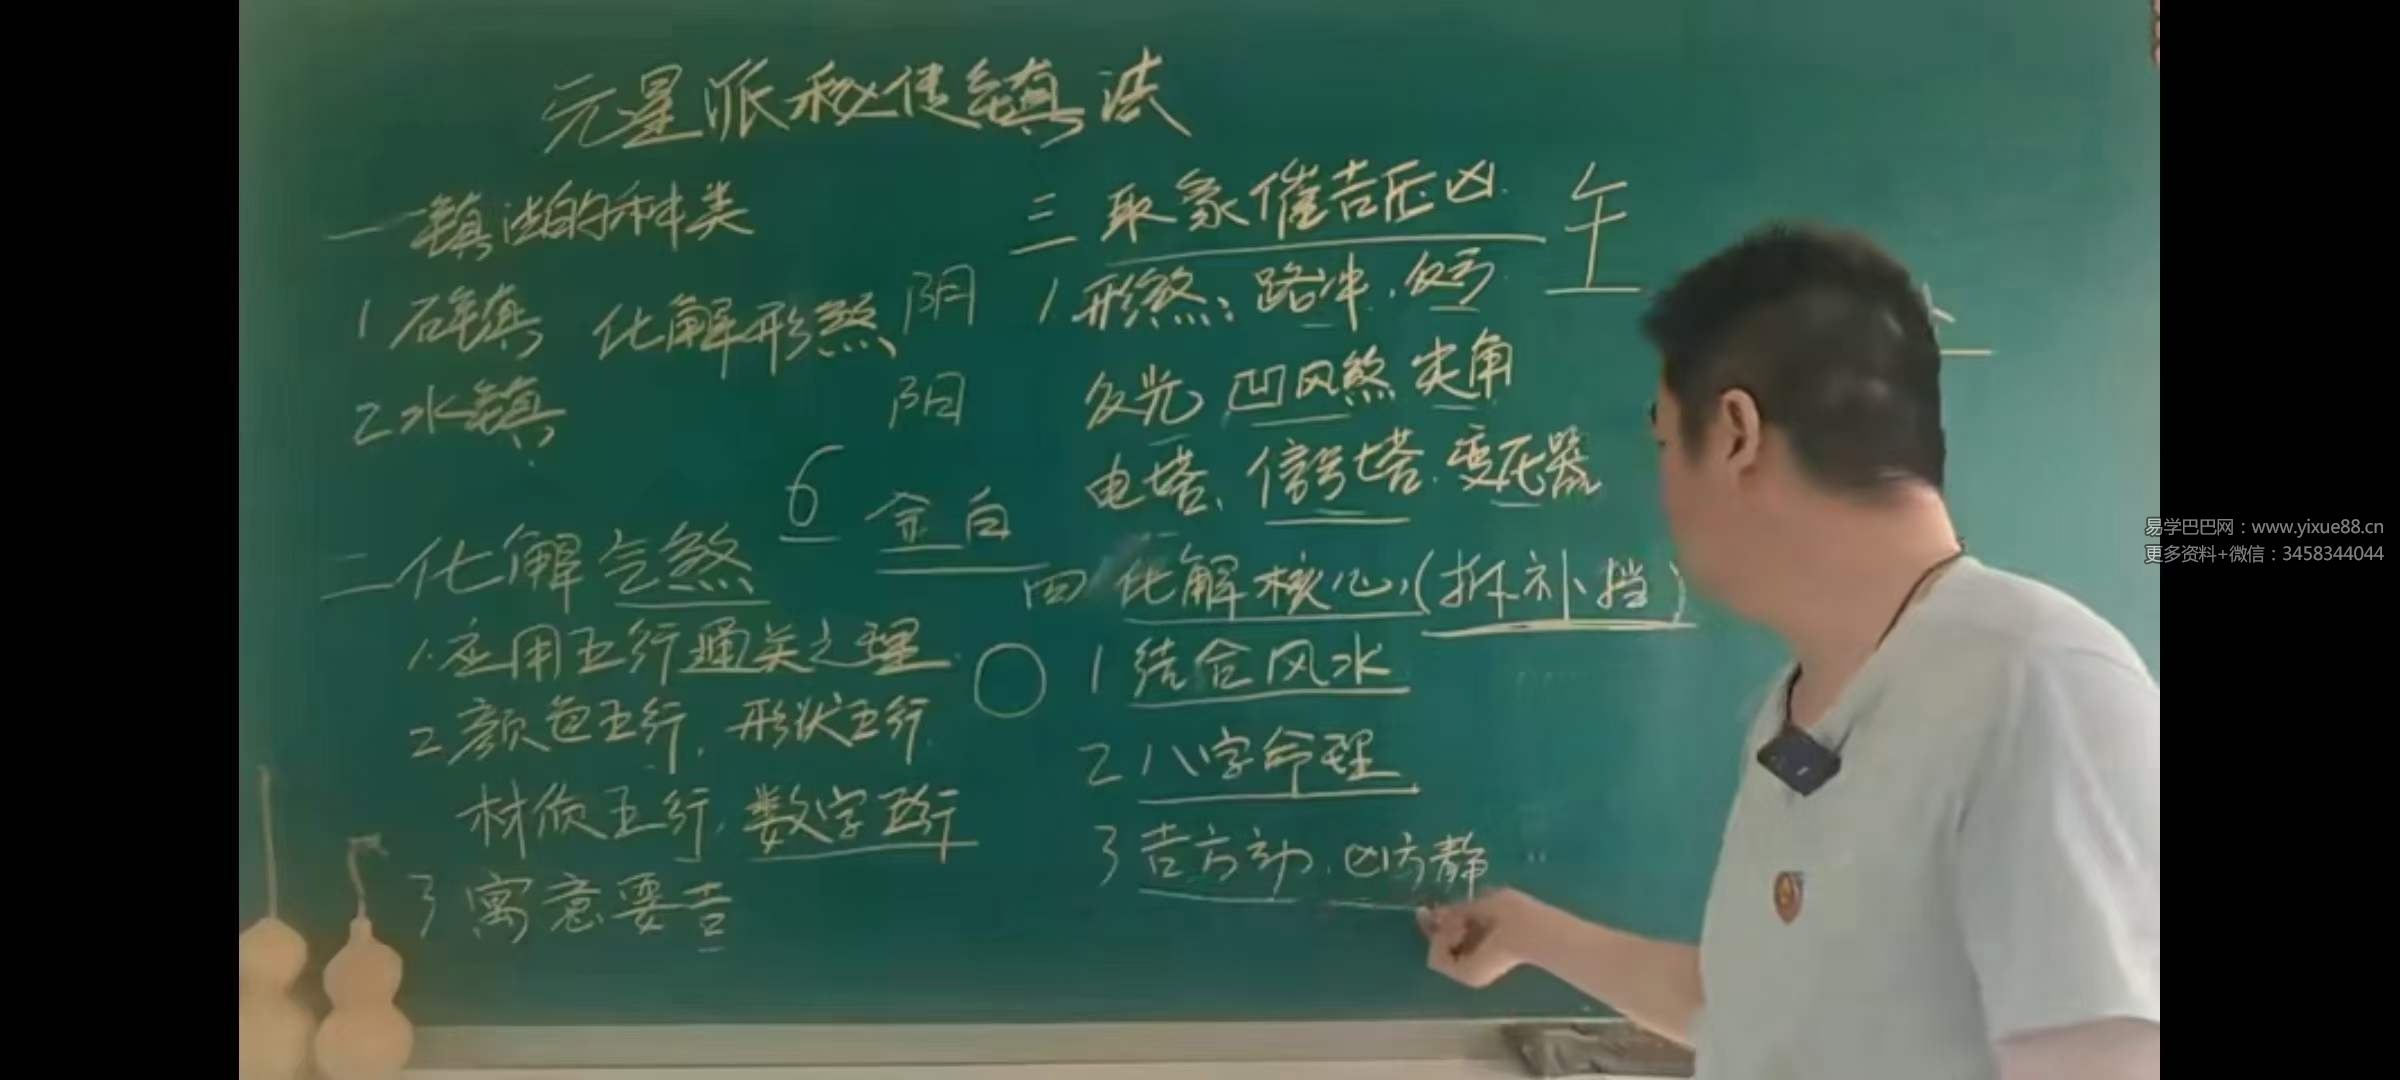 元星派秘传镇法
一 镇法的种类
1 石镇 化解形煞 阴
2 水镇 阳
6 金 白
二 化解气煞
1. 应用五行通关之理
2 颜色五行, 形状五行
材质五行, 数字五行
3 寓意要吉
三 取象催吉压凶
午
1 形煞: 路冲, 反弓
反光 凹风煞 尖角
电塔, 信号塔, 变压器
四 化解核心(拆补挡)
1 结合风水
2 八字命理
3 吉方动, 凶方静
易学巴巴网：www.yixue88.cn
更多资料+微信：3458344044